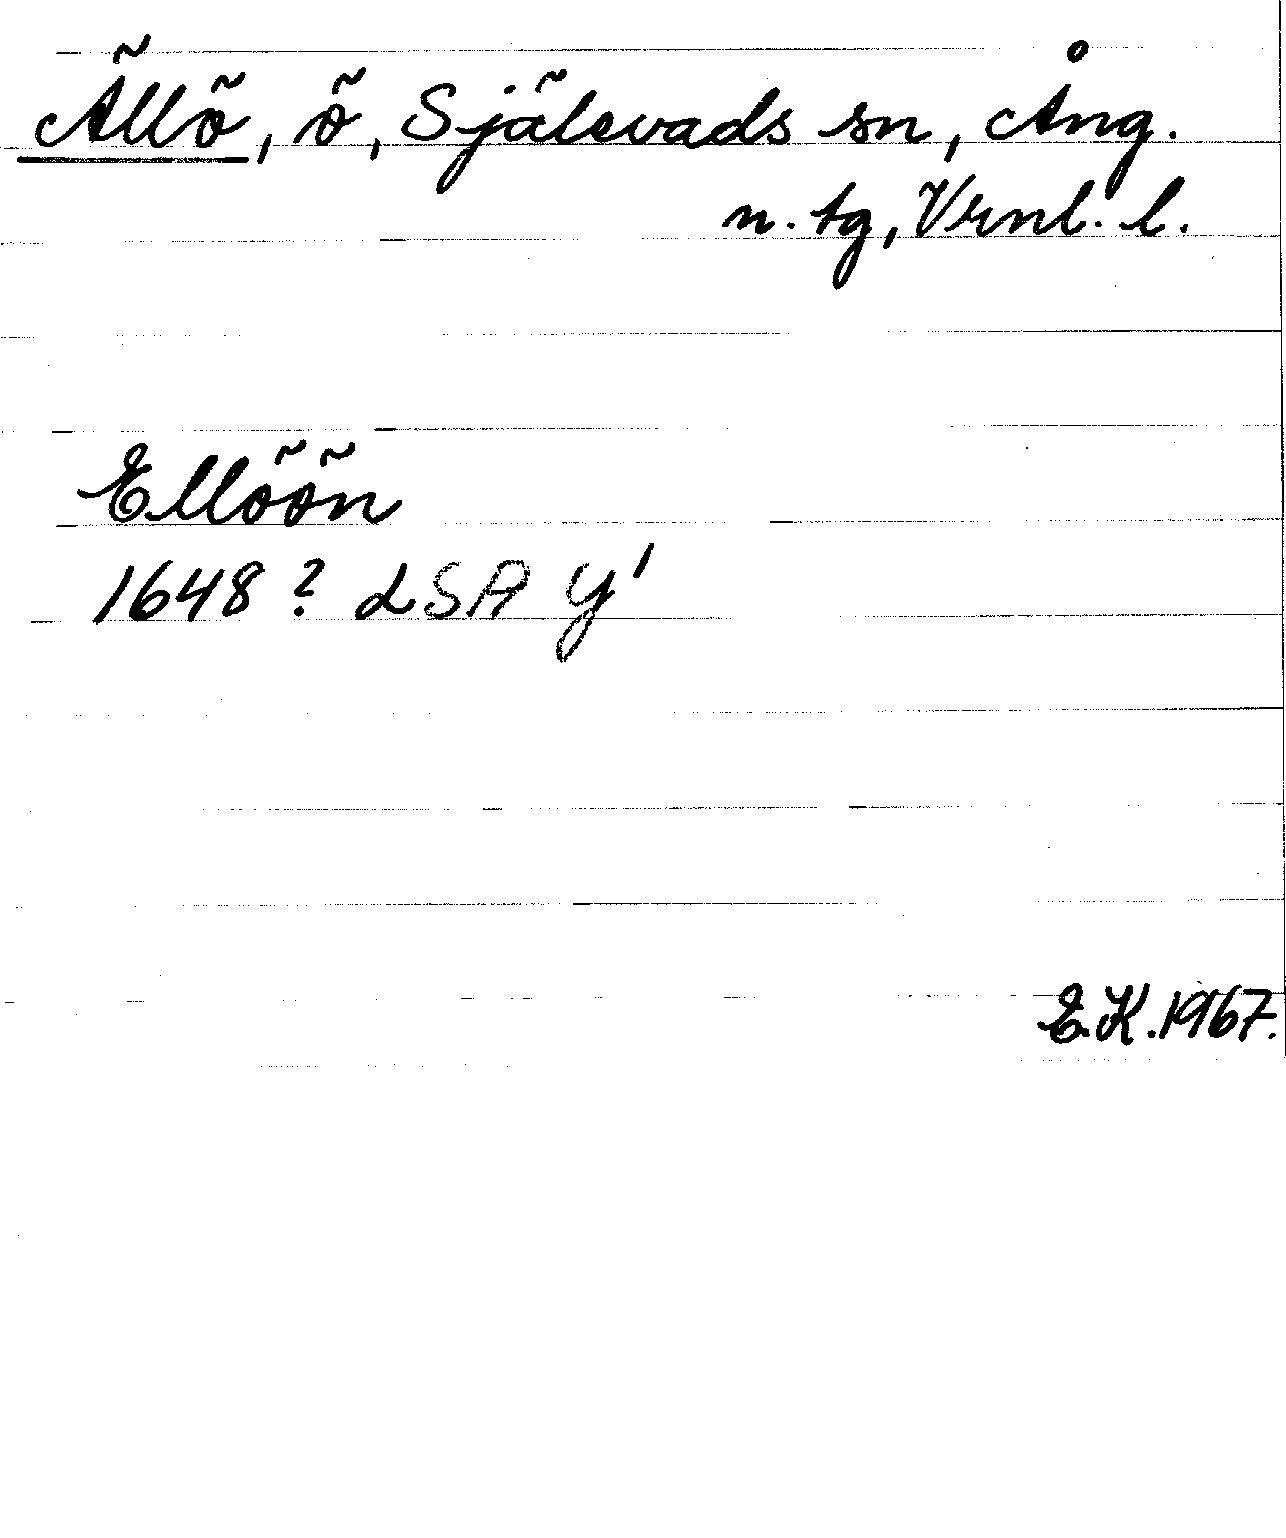 Ällö, ö, Själevads sn, Ång.
n. tg, Vrnl. l.
Ellöön
1648? LSA Y'
E.K. 1967.